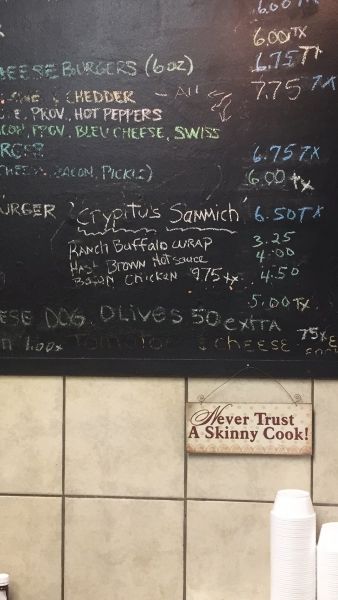 6.00 TX
6.00 TX
6.75 TX
HEESE BURGERS (6oz)
7.75 TX
CHEDDER - All
PROV, HOT PEPPERS
PROV, BLEU CHEESE, SWISS
RGER 6.75 TX
BACON, PICKLE) 6.00 TX
URGER 'Cryptu's Sammich' 6.50 TX
Ranch Buffalo WRAP 3.25
Hash Brown Hot sauce 4.00
Bacon Chicken 975 tx 4.50
5.00 TX
ESE DOG, OLIVES 50 extra
1.00x Tomatoe & cheese 75¢
Never Trust
A Skinny Cook!